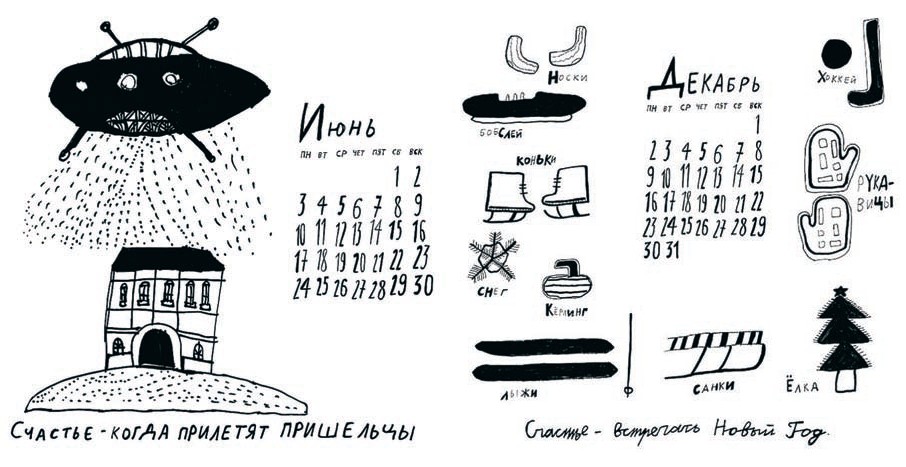 Июнь
пн вт ср чет пят сб вск
1 2
3 4 5 6 7 8 9
10 11 12 13 14 15 16
17 18 19 20 21 22 23
24 25 26 27 28 29 30
Счастье - когда прилетят пришельцы
Носки
бобслей
коньки
снег
Кёрлинг
лыжи
Декабрь
пн вт ср чет пят сб вск
1
2 3 4 5 6 7 8
9 10 11 12 13 14 15
16 17 18 19 20 21 22
23 24 25 26 27 28 29
30 31
санки
Хоккей
Рука-
вицы
Ёлка
Счастье - встречать Новый Год.